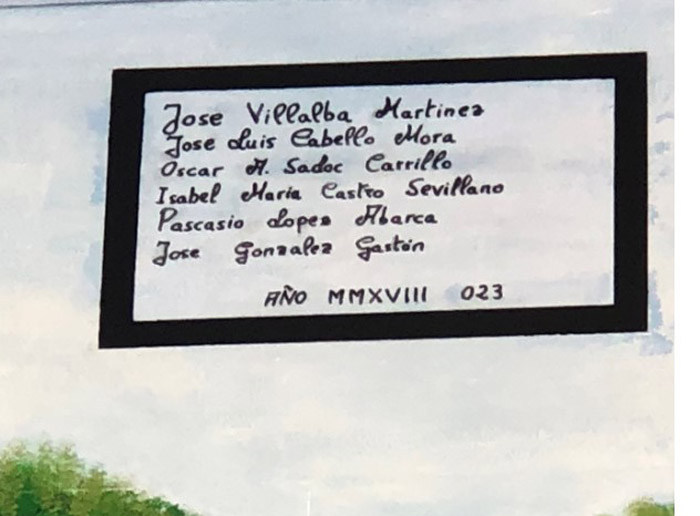 Jose Villalba Martinez
Jose Luis Cabello Mora
Oscar A. Sadoc Carrillo
Isabel Maria Castro Sevillano
Pascasio Lopez Abarca
Jose Gonzalez Gastón
AÑO MMXVIII 023